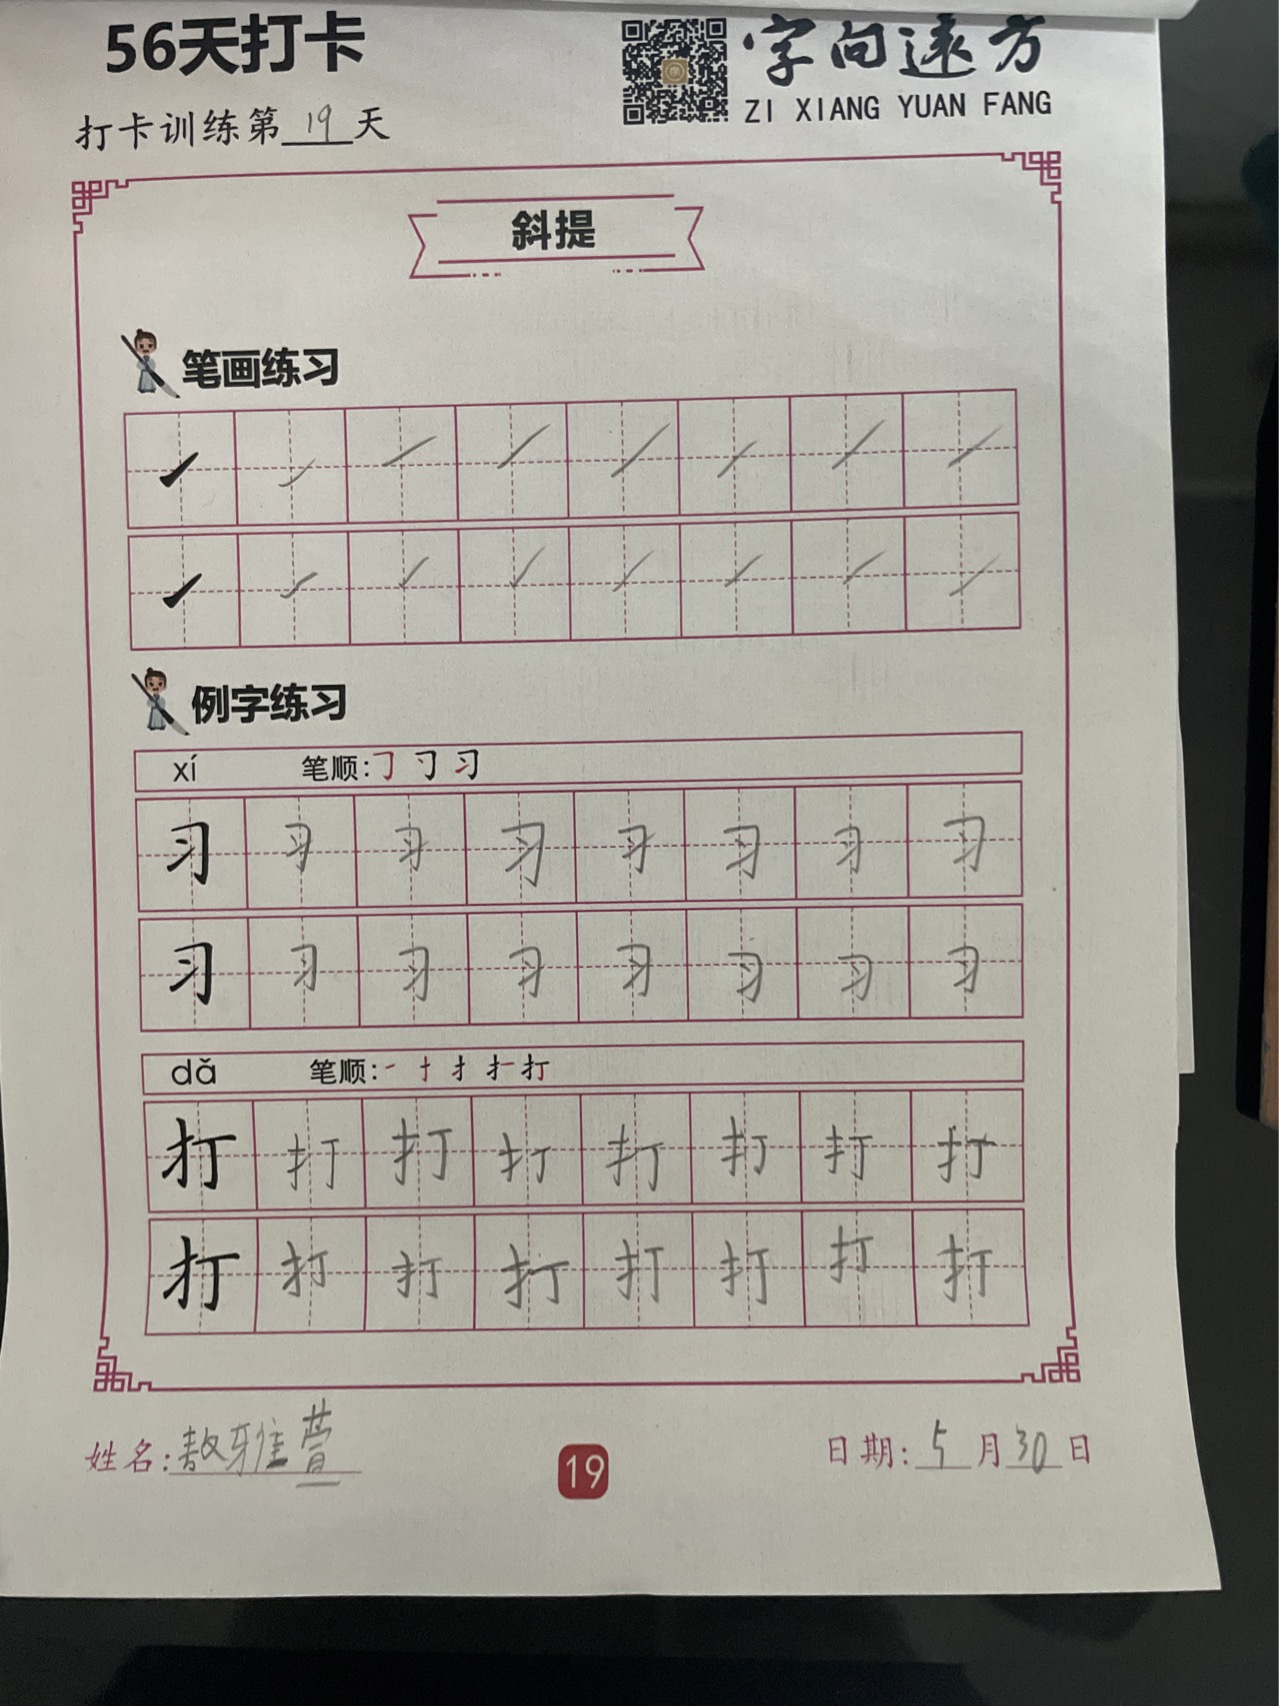 56天打卡
字向远方
ZI XIANG YUAN FANG
打卡训练第19天
斜提
笔画练习
例字练习
xí 笔顺:㇆ 刁 习
习 习 习 习 习 习 习 习
习 习 习 习 习 习 习 习
dǎ 笔顺:一 十 扌 扌一 打
打 打 打 打 打 打 打 打
打 打 打 打 打 打 打 打
姓名:敖雅萱
19
日期:5月30日